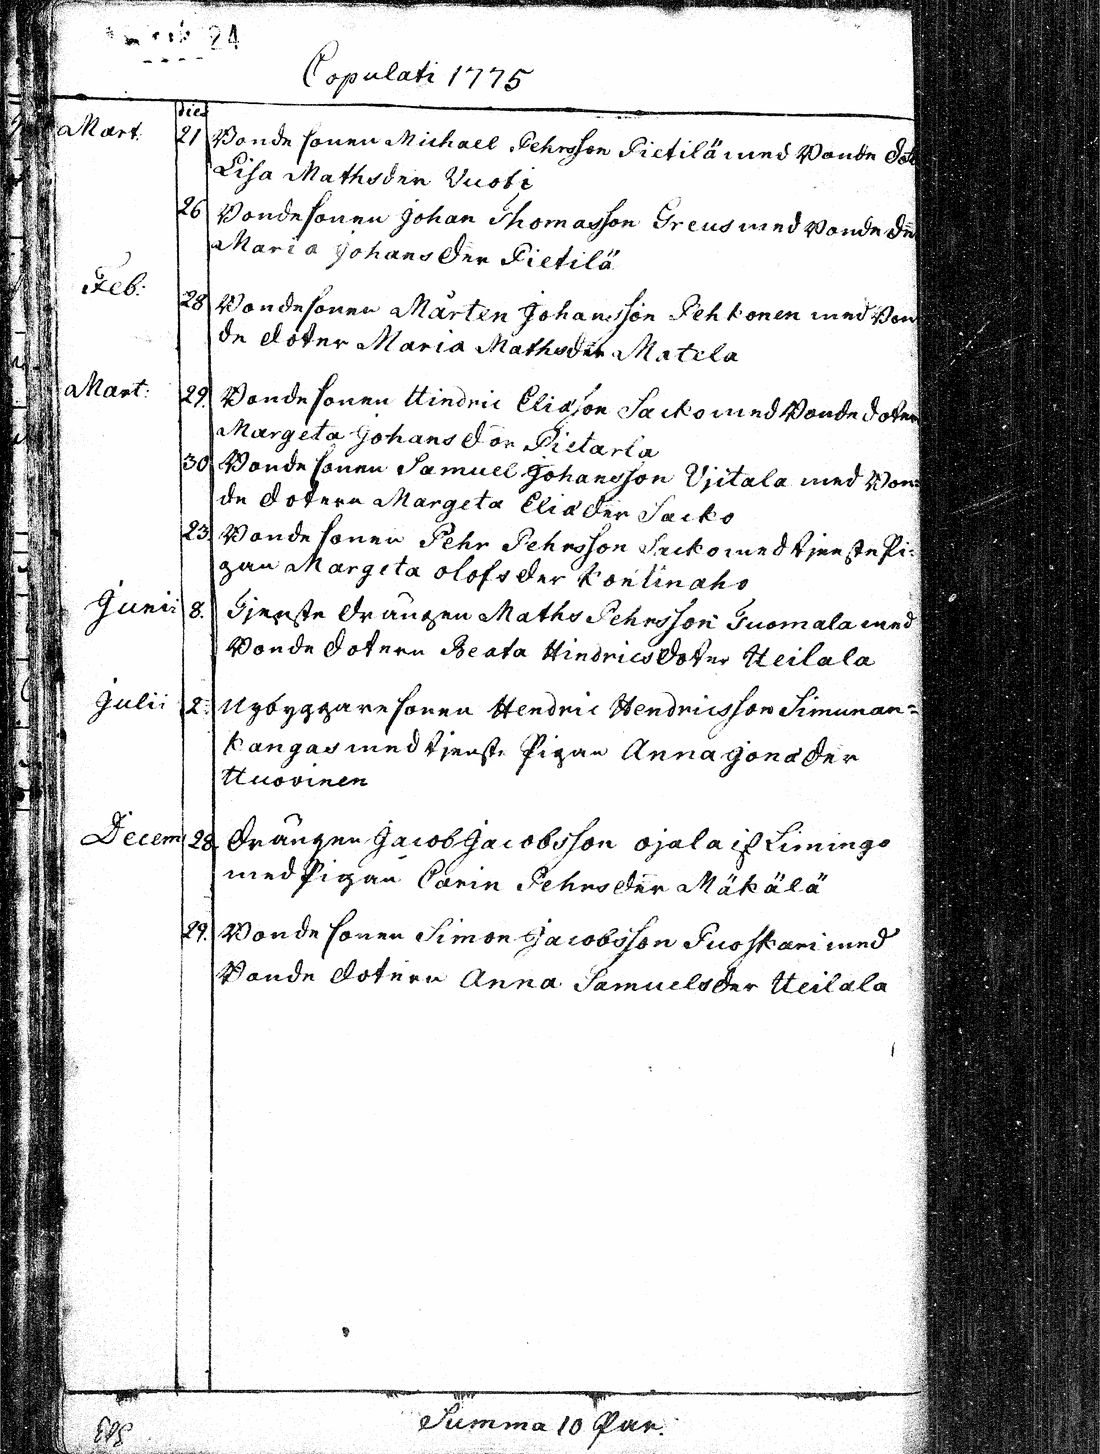 24
Copulati 1775
dies
Mart. 21 Bonde sonen Michael Pehrsson Pietilä med Bonde dot
Lisa Mathsder Vuoti
26 Bondesonen Johan Thomasson Greus med Bonde de
Maria Johansder Pietilä
Feb: 28 Bondesonen Mårten Johansson Pehkonen med Bon
de doter Maria Mathsder Matela
Mart: 29. Bondesonen Hindric Eliasson Sacko med Bonde doter
Margeta Johansdor Pietarla
30 Bonde sonen Samuel Johansson Vjitala med Bon=
de dotern Margeta Eliader Sacko
23 Bonde sonen Pehr Pehrsson Sacko med tjenste Pi-
gan Margeta olofsder Kontinaho
Junii 8. Tjenste drängen Maths Pehrsson Tuomala med
Bonde dotern Beata Hindricsdoter Heilala
Julii 2. Nybyggaresonen Hendric Hendricsson Simunan=
kangas med tjenste Pigan Anna Jonader
Huovinen
Decem 28. drängen Jacob Jacobsson ojala if Limingo
med Pigan Carin Pehrsder Mäkälä
29. Bonde sonen Simon Jacobsson Puoskari med
Bonde dotern Anna Samuelsder Heilala
Summa 10 Par.